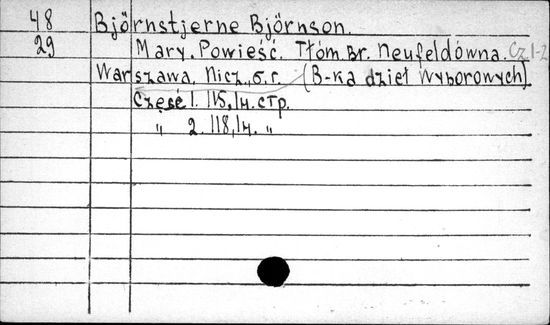 48 Björnstjerne Björnson.
29 Mary. Powieść. Tłóm. Br. Neufeldówna. Cz 1-2
Warszawa. Nicz, б. г. (B-ka dzieł wyborowych).
Część 1. 115, [4. стр.
„ 2. 118, [4. „